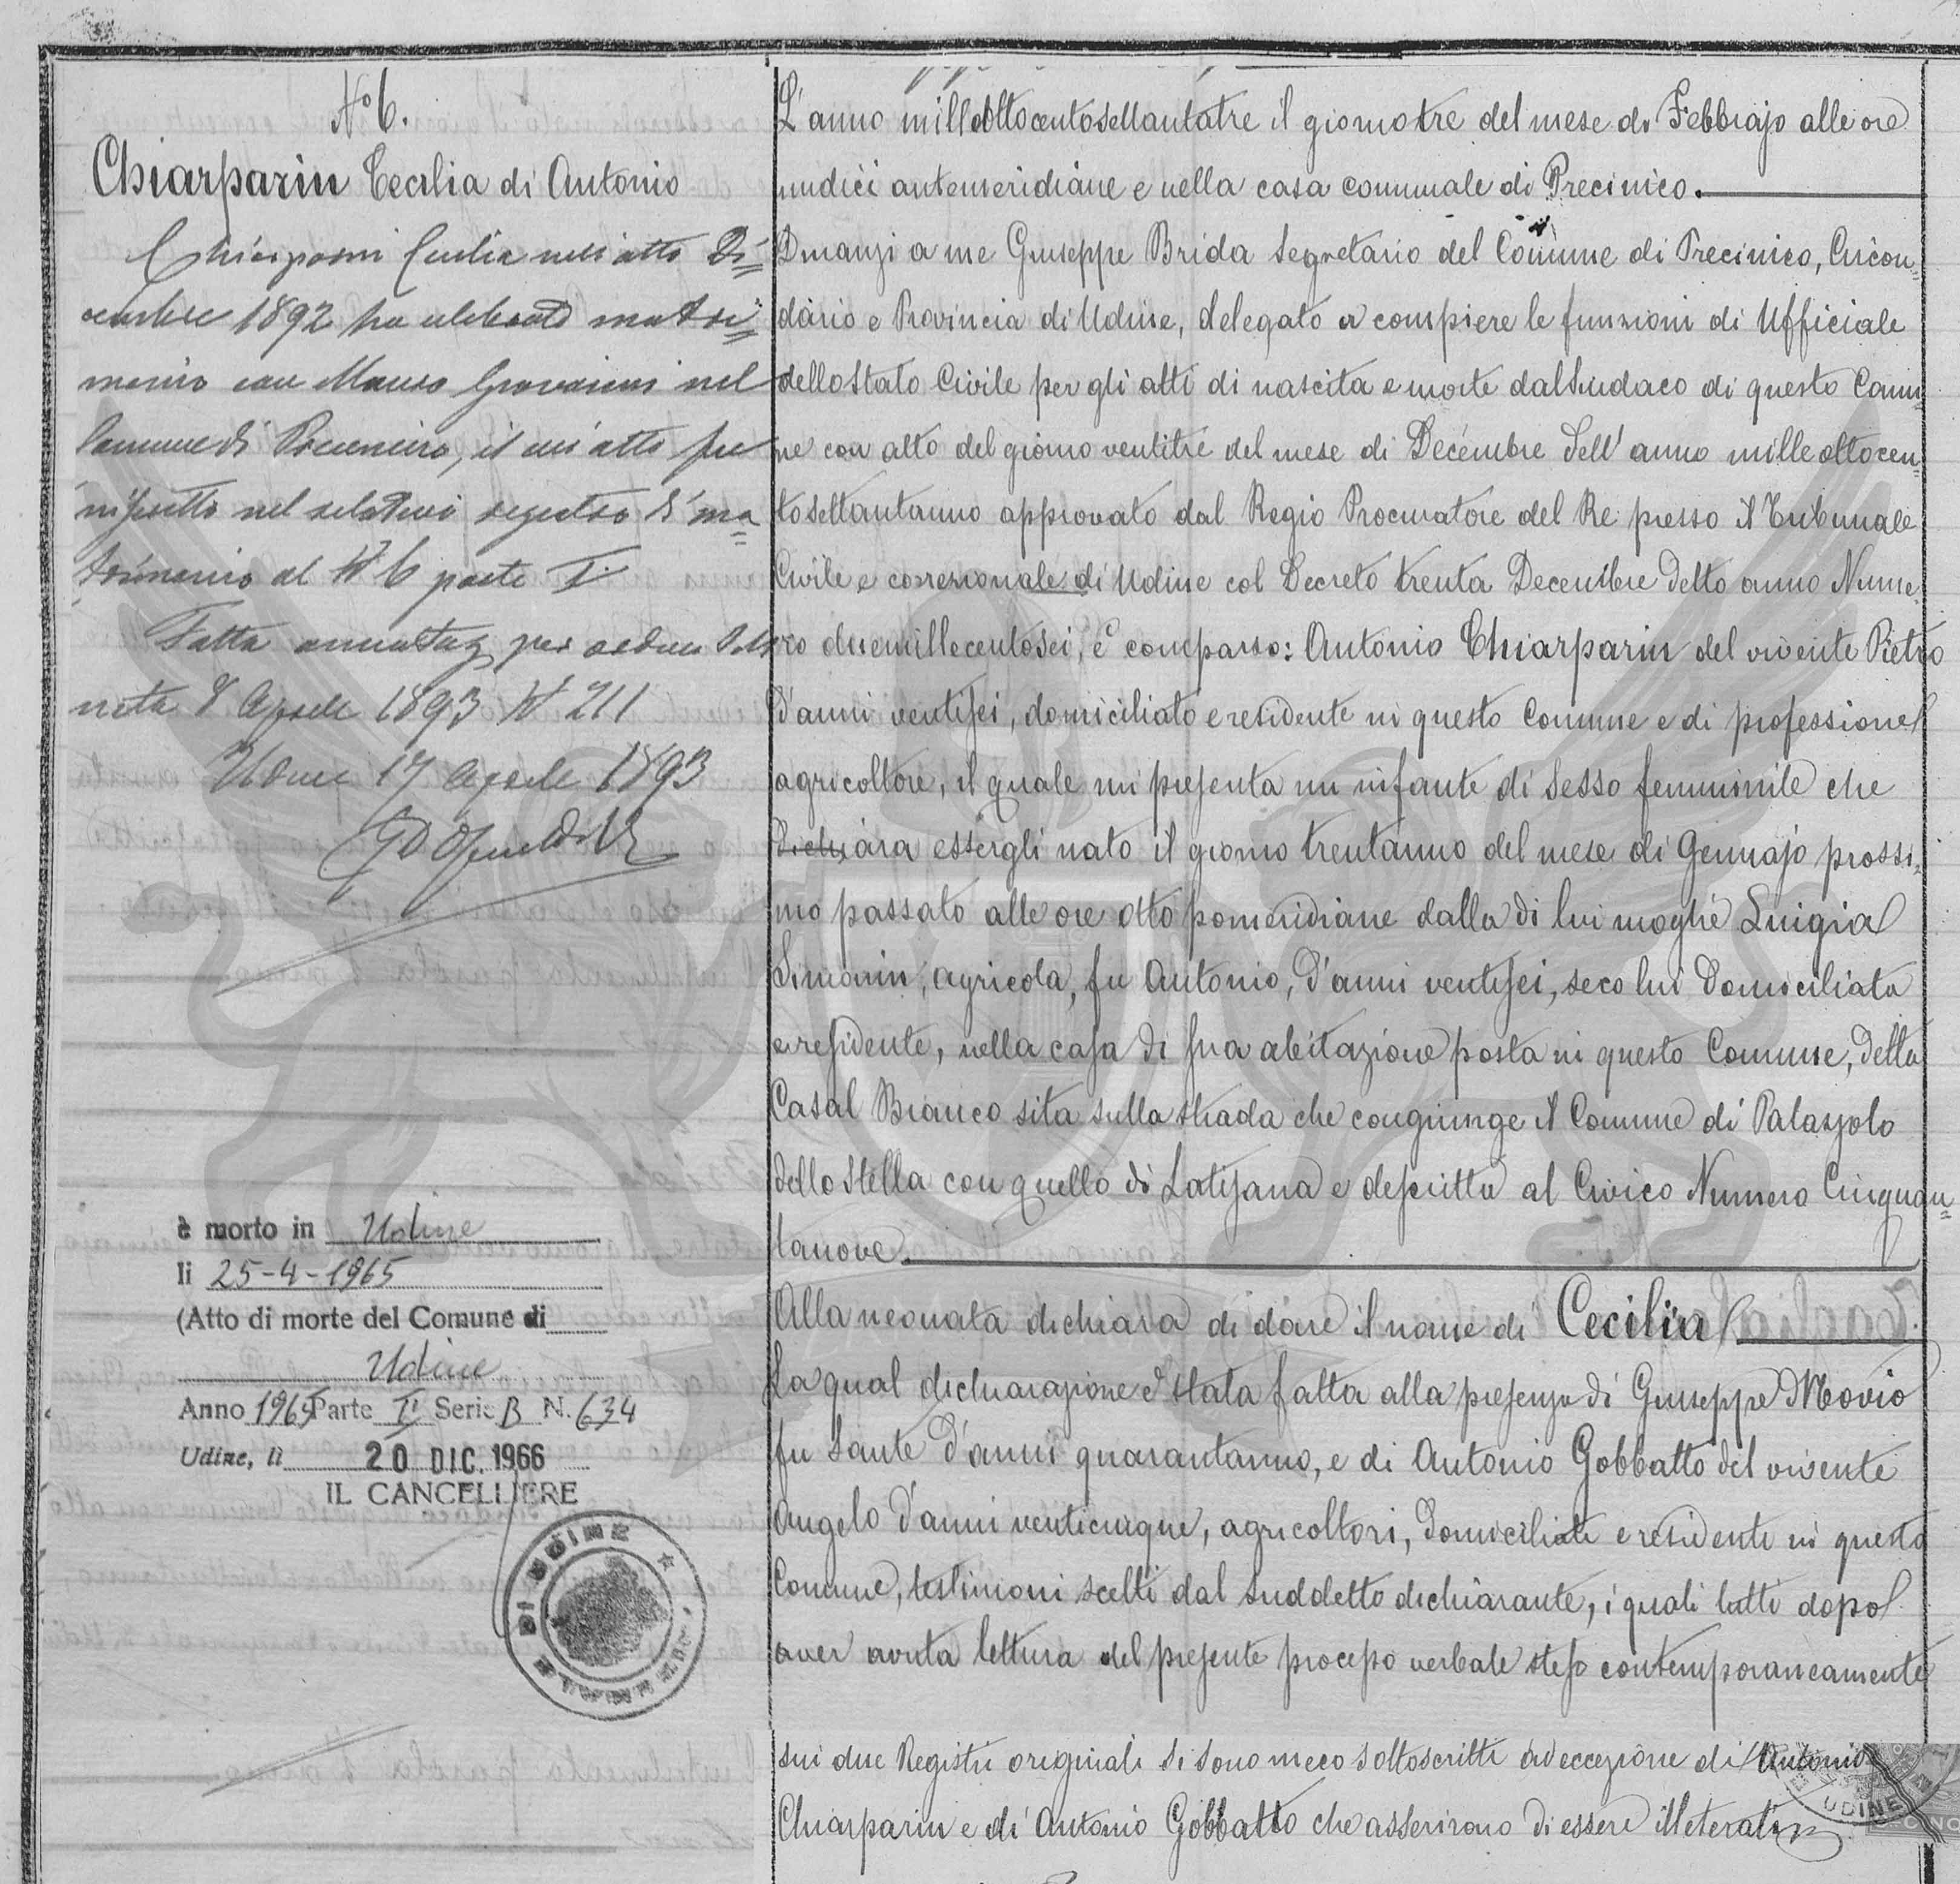 No 6.
Chiarparin Cecilia di Antonio
Chiarparin Cecilia nell'atto Di=
cembre 1892 ha celebrato matri=
monio con Mauro Giovanni nel
Comune di Precenicco, il cui atto fu
inscritto nel relativo registro di ma=
trimonio al N 6 parte I
Fatta annotaz per ordin
nata 8 Aprile 1893 N 211
Udine 17 Aprile 1893
è morto in Udine
li 25-4-1965
(Atto di morte del Comune di
Udine
Anno 1965 Parte II Serie B N. 634
Udine, li 20 DIC. 1966
IL CANCELLIERE
L'anno milleottocentosettantatre il giorno tre del mese di Febbrajo alle ore
undici antemeridiane e nella casa comunale di Precinico.
Dinanzi a me Giuseppe Brida Segretario del Comune di Precinico, Circon=
dario e Provincia di Udine, delegato a compiere le funzioni di Ufficiale
dello Stato Civile per gli atti di nascita e morte dal Sindaco di questo Comu=
ne con atto del giorno ventitre del mese di Decembre dell'anno mille ottocen=
tosettantanno approvato dal Regio Procuratore del Re presso il Tribunale
Civile e correzionale di Udine col Decreto trenta Decembre detto anno Nume=
ro duemillecentosei, è comparso: Antonio Chiarparin del vivente Pietro
d'anni ventisei, domiciliato e residente in questo Comune e di professione
agricoltore, il quale mi presenta un infante di sesso femminile che
dichiara essergli nato il giorno trentanno del mese di Gennajo prossi=
mo passato alle ore otto pomeridiane dalla di lui moglie Luigia
Simonin, agricola, fu Antonio, d'anni ventisei, seco lui domiciliata
e residente, nella casa di sua abitazione posta in questo Comune, detta
Casal Bianco sita sulla strada che congiunge il Comune di Palazzolo
dello Stella con quello di Latisana e descritta al Civico Numero Cinquan=
tanove.
Alla neonata dichiara di dare il nome di Cecilia
La qual dichiarazione è stata fatta alla presenza di Giuseppe Movio
fu Sante d'anni quarantanno, e di Antonio Gobbatto del vivente
Angelo d'anni venticinque, agricoltori, domiciliati e residente in questo
Comune, testimoni scelti dal suddetto dichiarante, i quali tutti dopo
aver avuta lettura del presente processo verbale steso contemporaneamente
sui due Registri originali si sono meco sottoscritti ad eccezione di Antonio
Chiarparin e di Antonio Gobbatto che asserirono di essere illeterati
UDINE